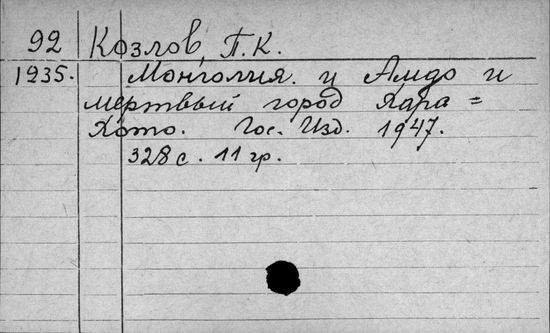 92 Козлов, П.К.
1935. Монголия. и Амдо и
мертвый город Хара=
Хото. Гос. Изд. 1947.
328 с. 11 гр.